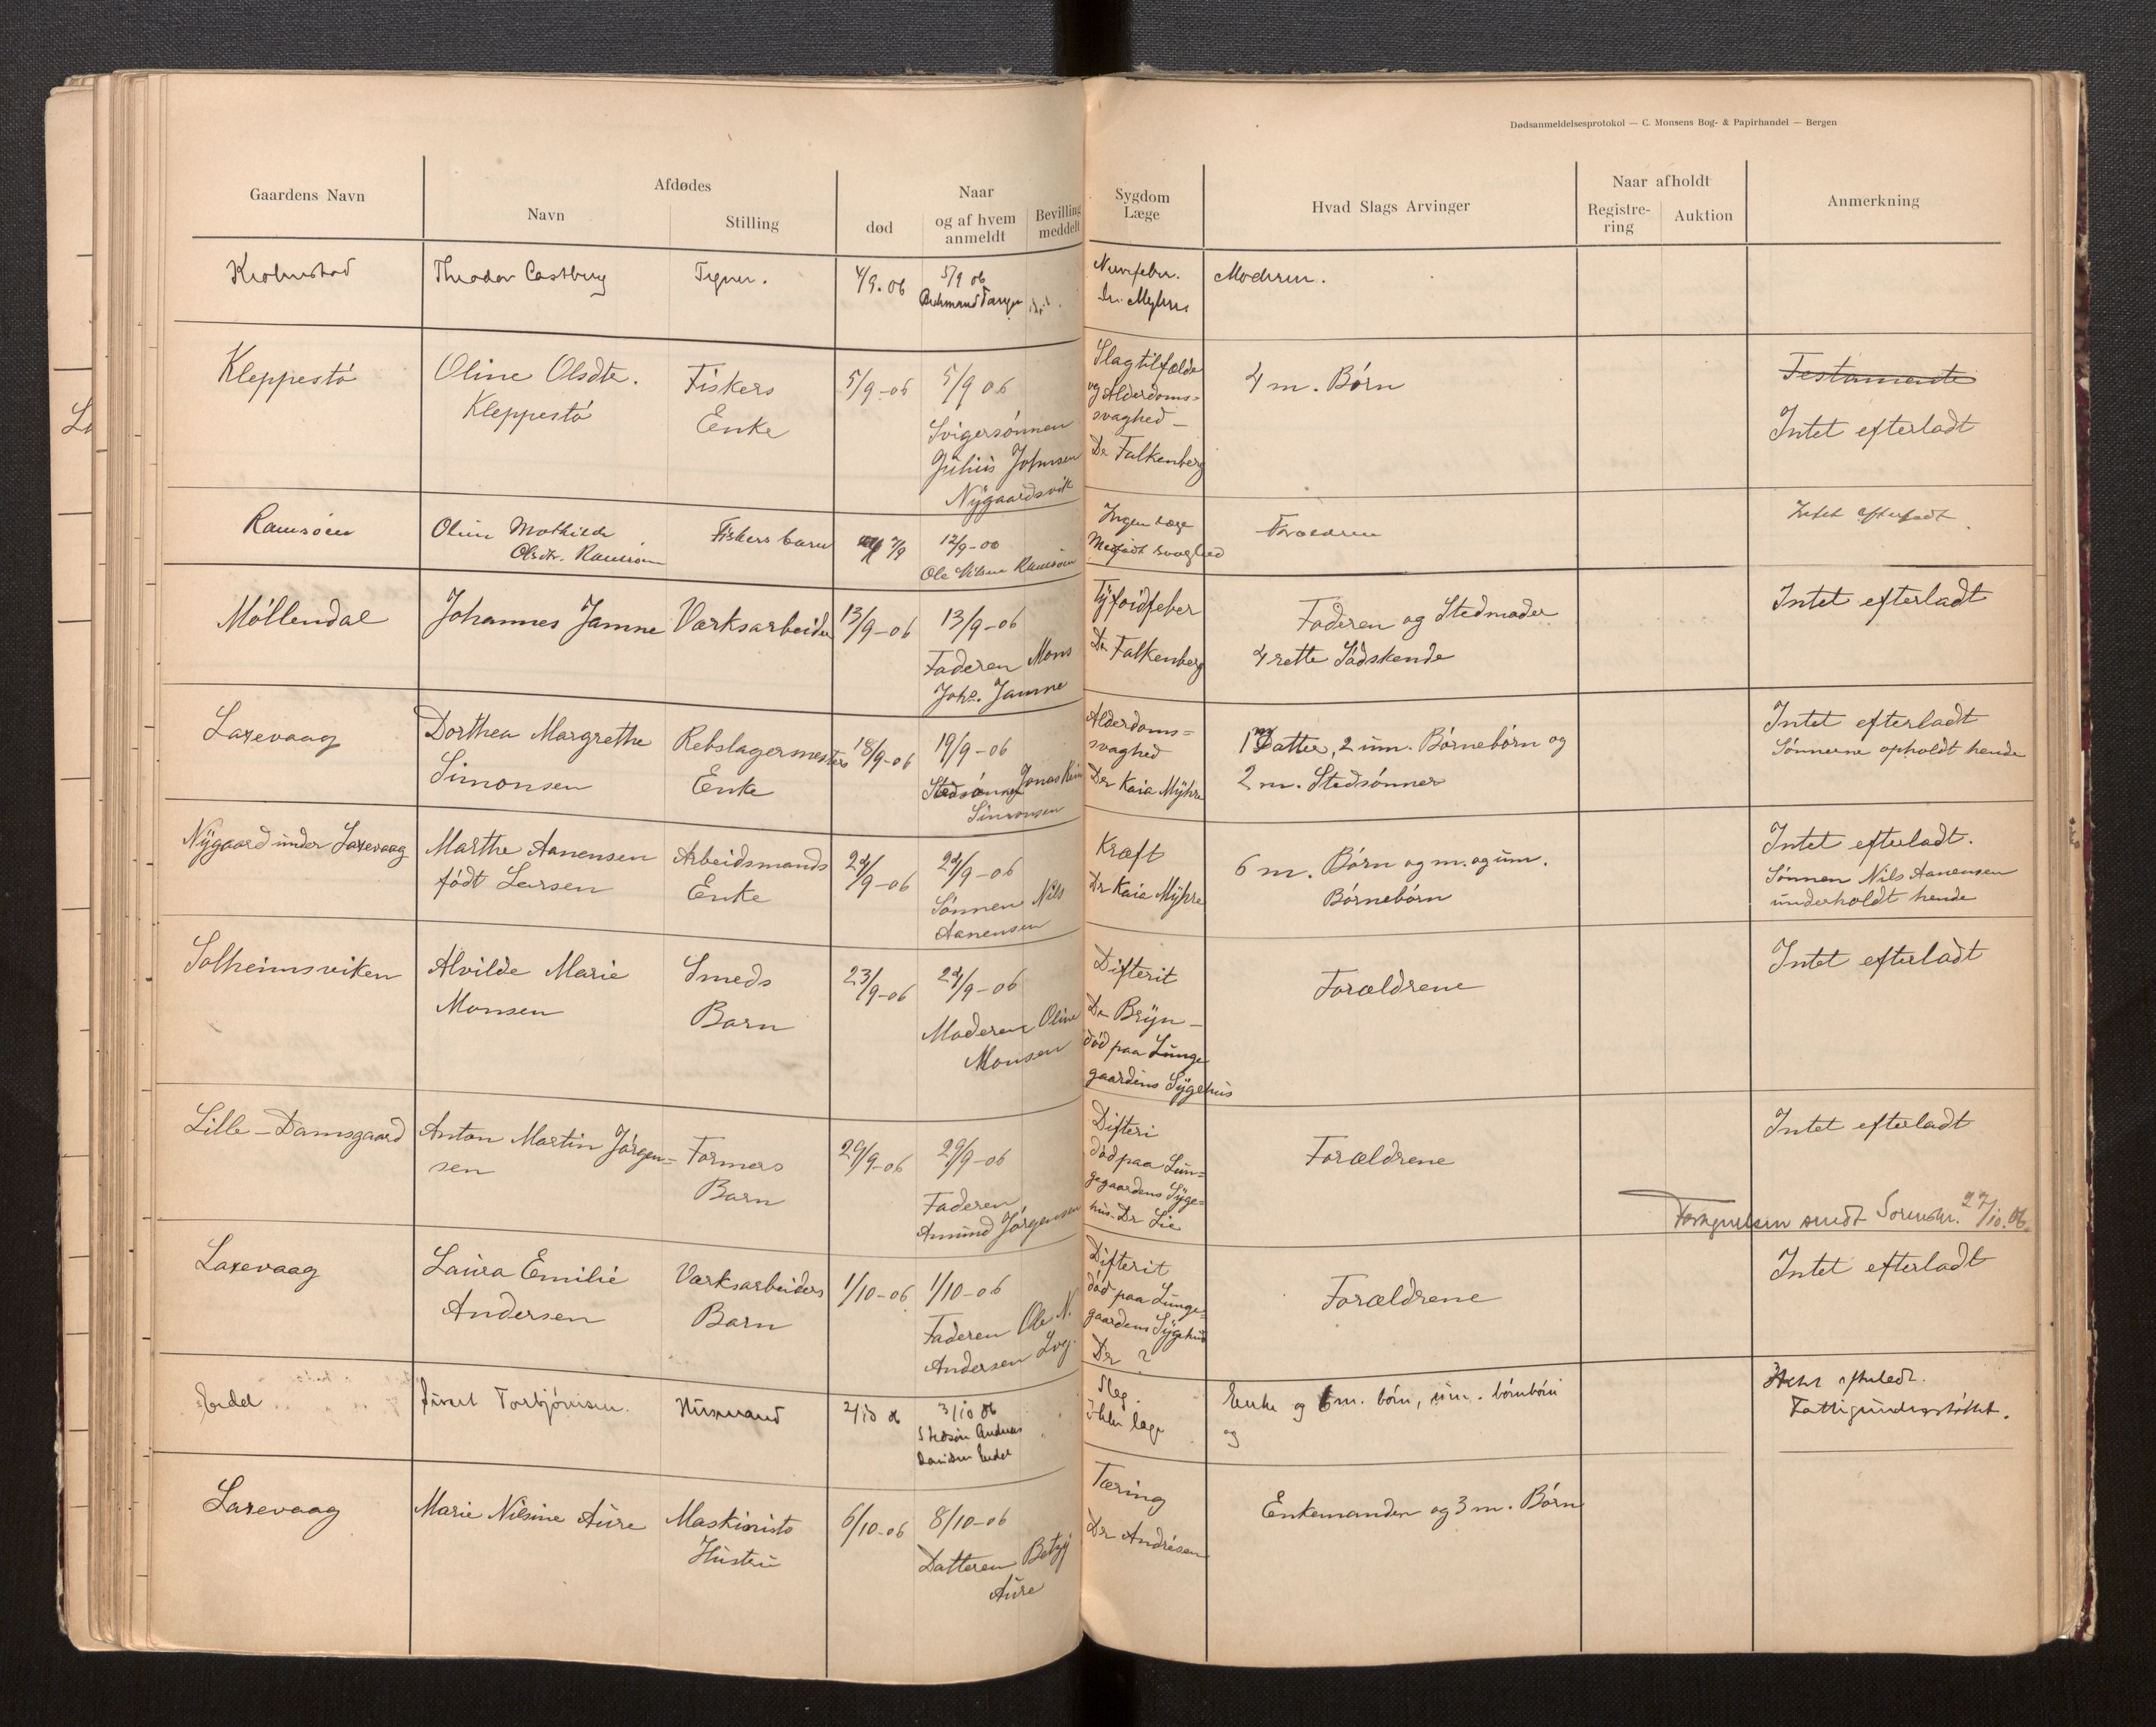 Dødsanmeldelsesprotokol — C. Monsens Bog- & Papirhandel — Bergen
Gaardens Navn
Afdødes
Navn
Stilling
død
Naar
og af hvem
anmeldt
Bevilling
meddelt
Sygdom
Læge
Hvad Slags Arvinger
Naar afholdt
Registre-
ring
Auktion
Anmerkning
Theodor Castberg
Tegner.
4/9.06
5/9 06
Nervefeber.
Dr. Myhre
Moderen.
Kleppestö
Oline Olsdtr.
Kleppestö
Fiskers
Enke
5/9-06
5/9 06
Svigersönnen
Julius Johnsen
Nygaardsvik
Slagtilfælde
og Alderdoms=
svaghed –
Dr Falkenberg
4 m. Børn
Testamente
Intet efterladt
Ramsöen
Oline Mathilde
Olsdtr. Ramsöen
Fiskers barn
7/9
12/9-06
Ole Nilsen Ramsöen
Ingen læge
Medfödt svaghed
Forældrene
Intet efterladt.
Möllendal
Johannes Jamne
Værksarbeider
13/9-06
13/9-06
Faderen Mons
Johs. Jamne
Tyfoidfeber
Dr Falkenberg
Faderen og Stedmoder
4 rette Södskende
Intet efterladt
Laxevaag
Dorthea Margrethe
Simonsen
Rebslagermesters
Enke
18/9-06
19/9-06
Stedsönnen Jonas Rein
Simonsen
Alderdoms=
svaghed
Dr Kaia Myhre
1 Datter, 2 um. Börnebörn og
2 m. Stedsönner
Intet efterladt
Sønnerne opholdt hende
Nygaard under Laxevaag
Marthe Aanensen
födt Larsen
Arbeidsmands
Enke
24/9-06
24/9-06
Sönnen Nils
Aanensen
Kræft
Dr Kaia Myhre
6 m. Börn og m. og um.
Börnebörn
Intet efterladt.
Sönnen Nils Aanensen
underholdt hende
Solheimsviken
Alvilde Marie
Monsen
Smeds
Barn
23/9-06
24/9-06
Moderen Oline
Monsen
Difterit
Dr Bryn –
död paa Lunge
gaardens Sygehus
Forældrene
Intet efterladt
Lille-Damsgaard
Anton Martin Jörgen=
sen
Formers
Barn
29/9-06
29/9-06
Faderen
Amund Jörgensen
Difteri
död paa Lun=
gegaardens Syge=
hus. Dr Lie
Forældrene
Intet efterladt
sendt Sorenskr. 27/10.06.
Laxevaag
Laura Emilie
Andersen
Værksarbeiders
Barn
1/10-06
1/10-06
Faderen Ole N.
Andersen Lvg.
Difterit
död paa Lunge=
gaardens Sygehus
Dr ?
Forældrene
Intet efterladt
Sivert Torbjörnsen.
Husmand
2/10 06
3/10 06
Stedsön Andreas
Slag.
Ikke læge
Enke og 6 m. börn, um. börnbörn
og
Intet efterladt.
Fattigunderstöttet.
Laxevaag
Marie Nilsine Aure
Maskinists
Hustru
6/10-06
8/10-06
Datteren Betzy
Aure
Tæring
Dr Andresen
Enkemanden og 3 m. Börn